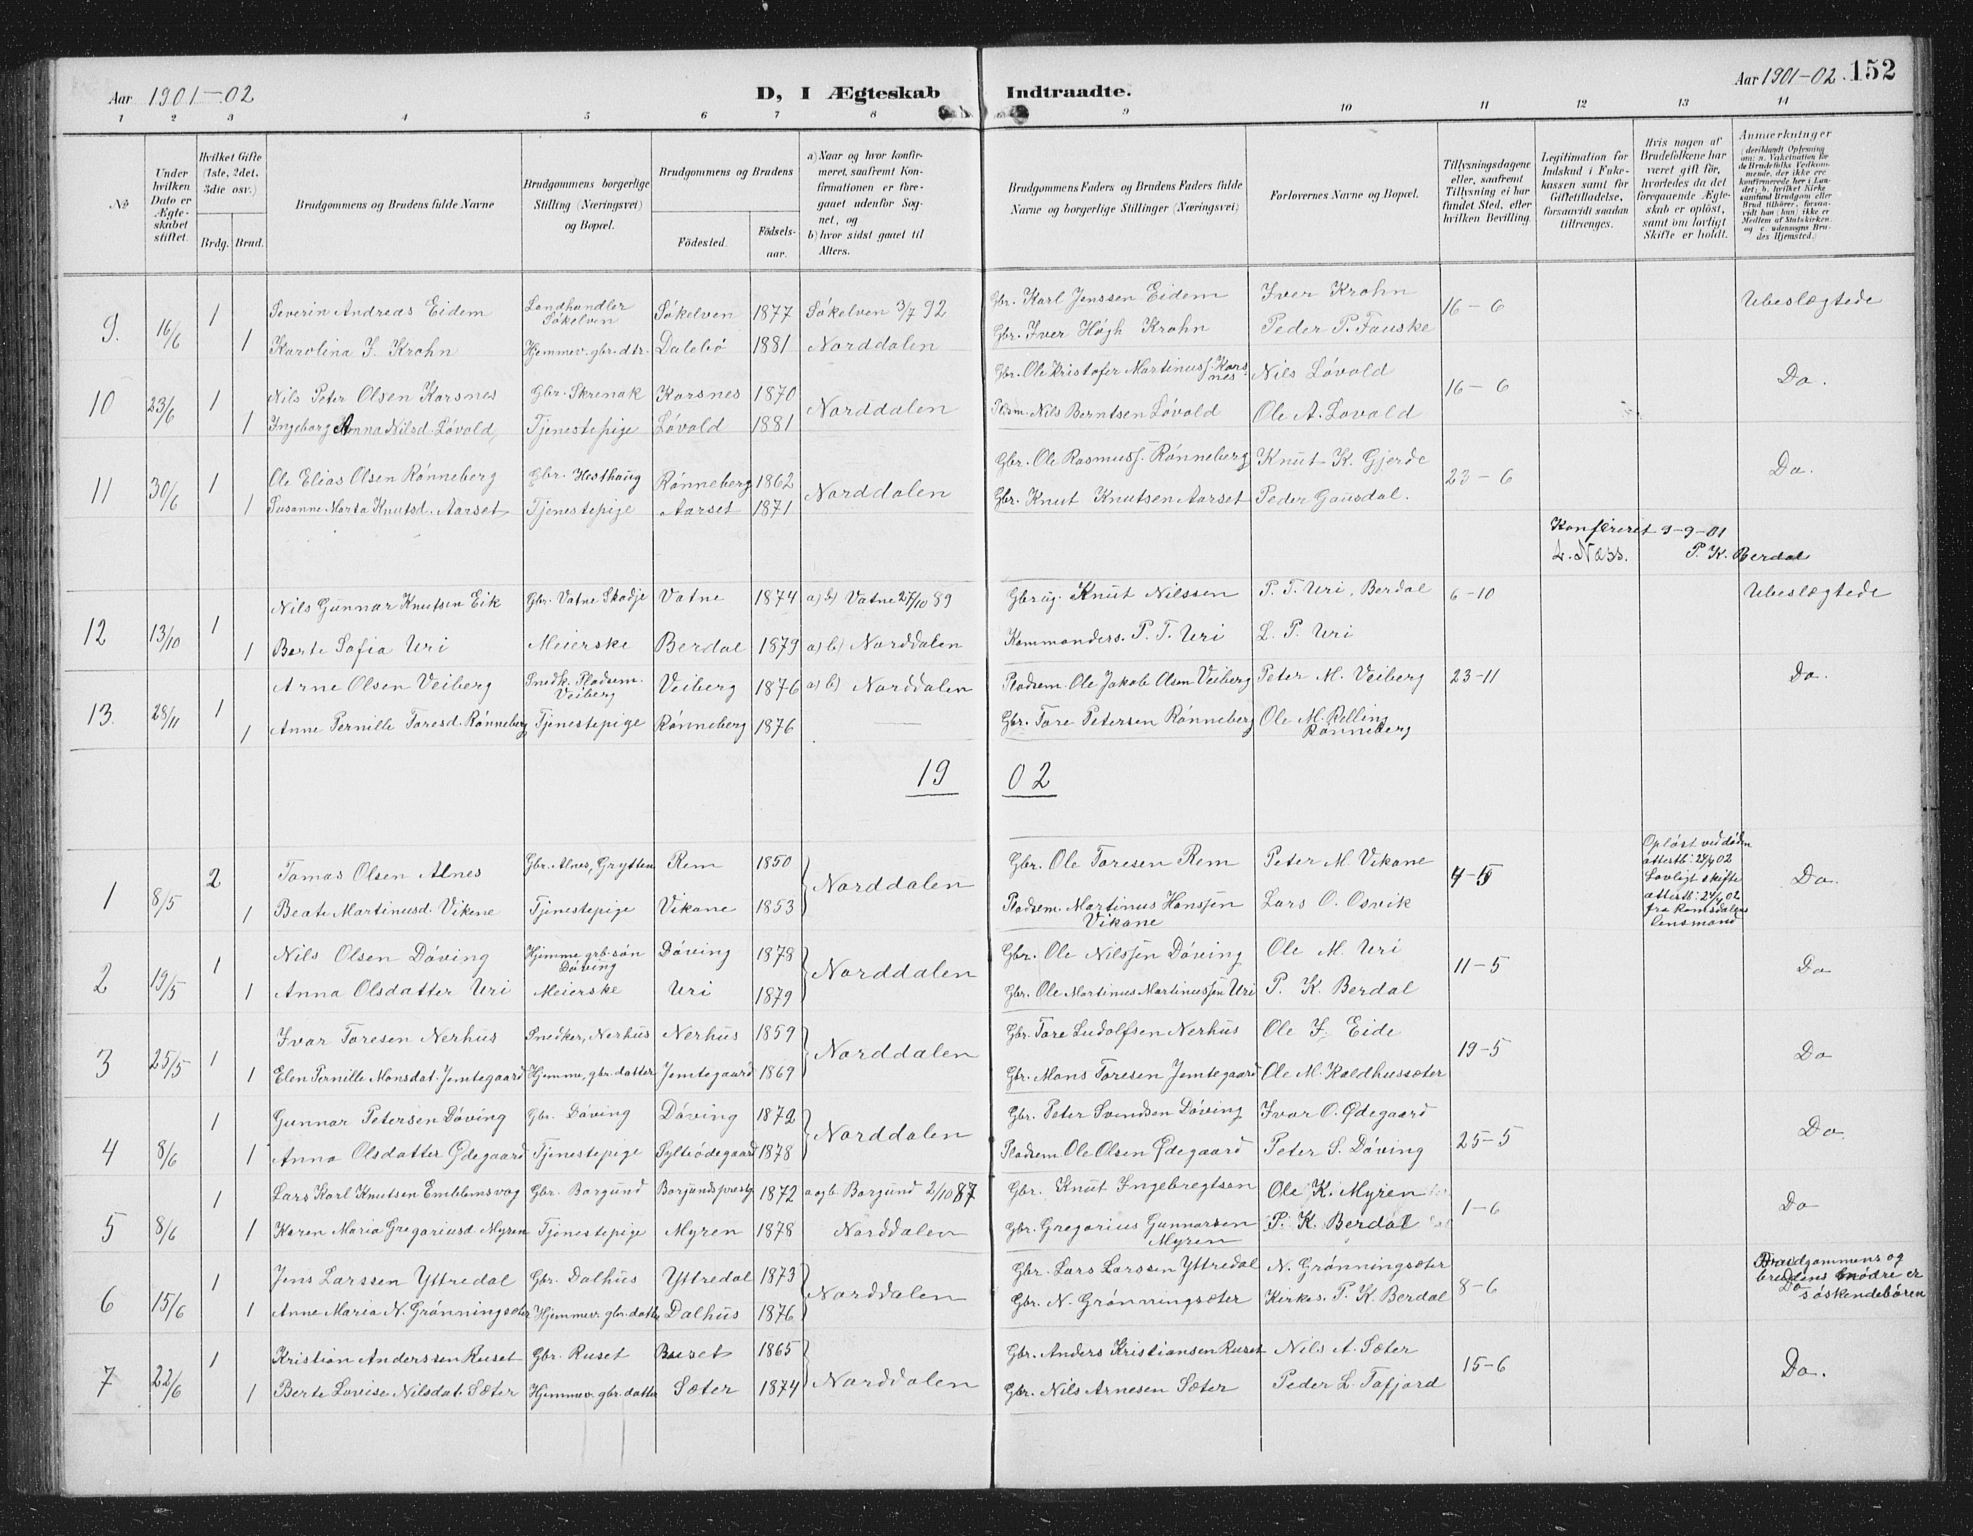 Aar 1901-02
D, I Ægteskab Indtraadte.
Aar 1901-02. 152
1 2 3 4 5 6 7 8 9 10 11 12 13 14
No
Under hvilken Dato er Ægteskabet stiftet.
Hvilket Gifte (1ste, 2det, 3die osv.)
Brdg. Brud.
Brudgommens og Brudens fulde Navne
Brudgommens borgerlige Stilling (Næringsvei) og Bopæl.
Brudgommens og Brudens
Fødested. Fødselsaar.
a) Naar og hvor konfirmeret, saafremt Konfirmationen er foregaaet udenfor Sognet, og
b) hvor sidst gaaet til Alters.
Brudgommens Faders og Brudens Faders fulde Navne og borgerlige Stillinger (Næringsvei)
Forlovernes Navne og Bopæl.
Tillysningsdagene eller, saafremt Tillysning ei har fundet Sted, efter hvilken Bevilling.
Legitimation for Indskud i Enkekassen samt for Giftetilladelse, forsaavidt saadan tiltrænges.
Hvis nogen af Brudefolkene har været gift før, hvorledes da det foregaaende Ægteskab er opløst, samt om lovligt Skifte er holdt.
Anmerkninger
9. 16/6 1 Severin Andreas Eidem Landhandler Søkelven Søkelven 1877 Søkelven 3/7 92 Gbr. Karl Jenssen Eidem Iver Krohn 16-6 Ubeslægtede
1 Karolina I. Krohn Hjemmev. gbr.dtr. Dalebø 1881 Norddalen Gbr. Iver Høgh Krohn Peder P. Fauske
10 23/6 1 Nils Peter Olsen Korsnes Gbr. Skrenak Korsnes 1870 Norddalen Gbr. Ole Kristofer Martinuss. Korsnes Nils Løvold 16-6 Do.
1 Ingeborg Anna Nilsd. Løvold, Tjenestepige Løvold 1881 Pladsm. Nils Berntsen Løvold Ole A. Lovald
11 30/6 1 Ole Elias Olsen Rønneberg Gbr. Hesthaug Rønneberg 1862 Norddalen Gbr. Ole Rasmuss. Rønneberg Knut K. Gjerde 23-6 Do.
1 Susanne Marta Knutsd. Aarset Tjenestepige Aarset 1871 Gbr. Knut Knutsen Aarset Peder Gausdal.
Konfereret 9-9-01
L. Næss. P. K. Berdal
12 13/10 1 Nils Gunnar Knutsen Eik Gbr. Vatne Skodje Vatne 1874 a) b) Vatne 27/10 89 Gbrug. Knut Nilssen P. T. Uri, Berdal 6-10 Ubeslægtede
1 Berte Sofia Uri Meierske Berdal 1879 a) b) Norddalen Kommanders. P. T. Uri L. P. Uri
13. 28/11 1 Arne Olsen Veiberg Snedk. Pladsem. Veiberg Veiberg 1876 a) b) Norddalen Pladsem. Ole Jakob Olsen Veiberg Peter M. Veiberg 23-11 Do.
1 Anne Pernille Toresd. Rønneberg Tjenestepige Rønneberg 1876 — Gbr. Tore Petersen Rønneberg Ole M. Relling Rønneberg
19 02
1 8/5 2 Tomas Olsen Alnes Gbr. Alnes, Grytten Rem 1850 Norddalen Gbr. Ole Toresen Rem Peter M. Vikane 4-5 Opløst ved døden attestb: 24/4 02 Lovligt skifte attestb: 24/4 02 fra Romsdalens lensmand Do.
1 Beate Martinusd. Vikene Tjenestepige Vikane 1853 Pladsem. Martinus Hanssen Vikane Lars O. Osvik
2 19/5 1 Nils Olsen Døving Hjemme grb-søn Døving Døving 1878 Norddalen Gbr. Ole Nilssen Døving Ole M. Uri 11-5 Do
1 Anna Olsdatter Uri Meierske Uri 1879 Gbr. Ole Martinus Martinussen Uri P. K. Berdal
3 25/5 1 Ivar Toresen Nerhus Snedker, Nerhus Nerhus 1859 Norddalen Gbr. Tore Ludolfsen Nerhus Ole I. Eide 19-5 Do
1 Elen Pernille Monsdat. Jemtegaard Hjemme, gbr. datter Jemtegaard 1869 Gbr. Mons Toresen Jemtegaard Ole M. Kaldhussæter
4 8/6 1 Gunnar Petersen Døving Gbr. Døving Døving 1872 Norddalen Gbr. Peter Svendsen Døving Ivar O. Ødegaard 25-5 Do.
1 Anna Olsdatter Ødegaard Tjenestepige Sylteødegaard 1878 Pladsem Ole Olsen Ødegaard Peter S. Døving
5 8/6 1 Lars Karl Knutsen Emblemsvag Gbr. Borgund Borgunds prestg. 1872 a og b. Borgund 2/10 87 Gbr. Knut Ingebregtsen Ole K. Myren 1-6 Do
1 Karen Maria Gregoriusd Myren Tjenestepige Myren 1878 Norddalen Gbr. Gregorius Gunnarsen Myren P. K. Berdal
6 15/6 1 Jens Larssen Yttredal Gbr. Dalhus Yttredal 1873 Norddalen Gbr. Lars Larssen Yttredal N. Grønningsæter 8-6 Brudgommens og brudens mødre er søskendebøren Do
1 Anne Maria N. Grønningsæter Hjemmev. gbr. datter Dalhus 1876 Gbr. N. Grønningsæter Kirkes. P. K. Berdal
7 22/6 1 Kristian Anderssen Ruset Gbr. Ruset Ruset 1865 Norddalen Gbr. Anders Kristiansen Ruset Nils A. Sæter 15-6 Do.
1 Berte Lovise Nilsdat. Sæter Hjemmev. gbr. datter Sæter 1874 Gbr. Nils Arnesen Sæter Peder L. Tafjord